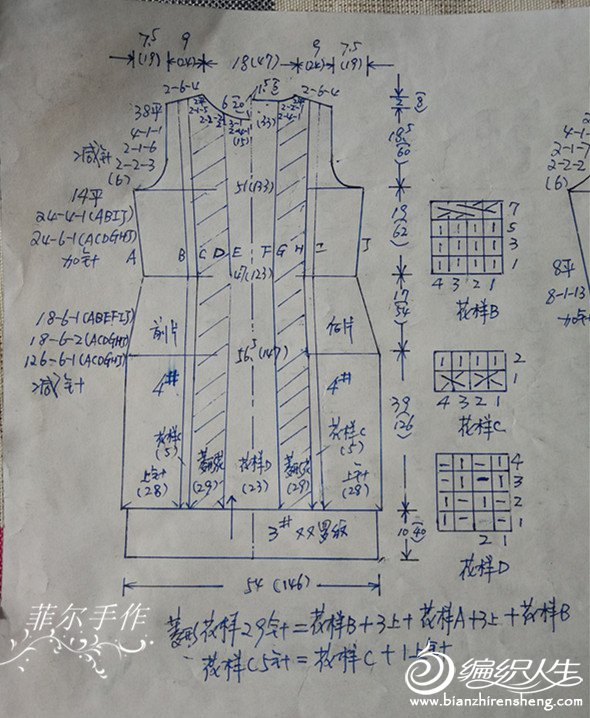 7.5 9 18(47) 9 7.5
(19) (24) (24) (19)
2-6-4 1.5 2-6-4
38平
4-1-1
2-1-6
2-2-3
(6)
减针
2平
2-1-5
2-2-2
6
20
3-1
2-4-1
(15)
(33)
2-4-1
2
8
18.5
60
51(133)
14平
24-4-1(ABIJ)
24-6-1(ACDGHJ)
加针
A B C D E F G H I J
19
62
47(123)
17
54
18-6-1(ABEFIJ)
18-6-2(ACDGHJ)
126-6-1(ACDGHJ)
减针
前片 后片
56.5(147)
4# 4#
39
126
花样C
(5)
上针
(28)
菱形
(29)
花样D
(23)
菱形
(29)
花样C
(5)
上针
(28)
3#双罗纹
10
40
54(146)
7
5
3
1
4 3 2 1
花样B
2
1
4 3 2 1
花样C
4
3
2
1
2 1
花样D
2
4-1-
2-1-7
2-2-2
(6)
8平
8-1-13
加针
菱形花样29针=花样B+3上+花样A+3上+花样B
花样C5针=花样C+1上针
菲尔手作
编织人生
www.bianzhirensheng.com